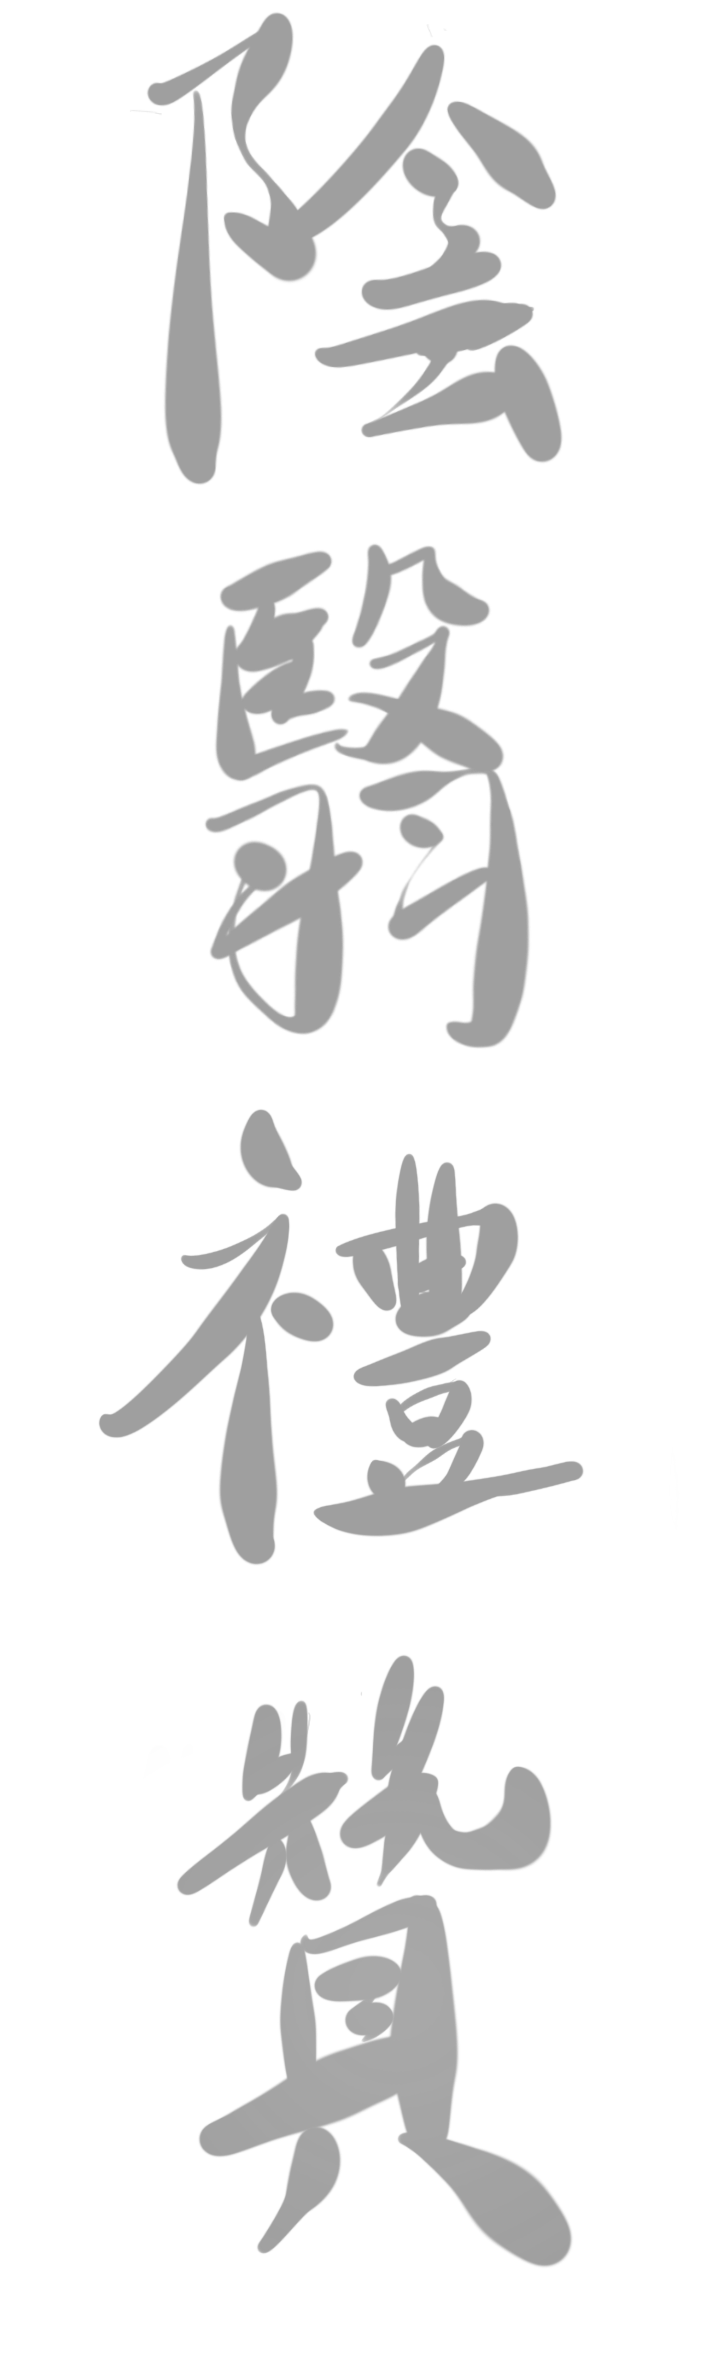 陰翳禮贊